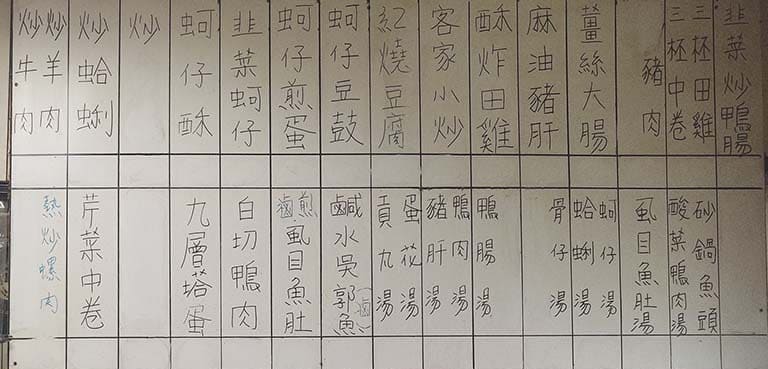 韭菜炒鴨腸
三杯田雞
三杯中卷
豬肉
薑絲大腸
麻油豬肝
酥炸田雞
客家小炒
紅燒豆腐
蚵仔豆鼓
蚵仔煎蛋
韭菜蚵仔
蚵仔酥
炒
炒蛤蜊
炒羊肉
炒牛肉
砂鍋魚頭
酸菜鴨肉湯
虱目魚肚湯
蚵仔湯
蛤蜊湯
骨仔湯
鴨腸湯
鴨肉湯
豬肝湯
蛋花湯
貢丸湯
鹹水吳郭魚(滷)
煎滷虱目魚肚
白切鴨肉
九層塔蛋
芹菜中卷
熱炒螺肉